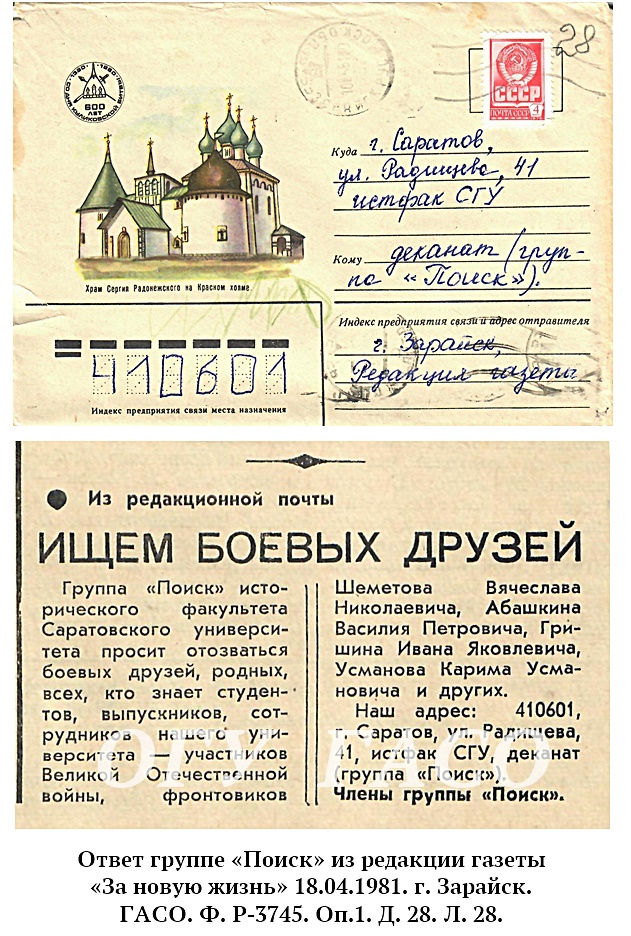 28
1380 1980
600
ЛЕТ
СО ДНЯ КУЛИКОВСКОЙ БИТВЫ
СССР
ПОЧТА СССР 4
Куда г. Саратов,
ул. Радищева, 41
истфак СГУ
Кому деканат (груп-
па «Поиск»).
Храм Сергия Радонежского на Красном холме
Индекс предприятия связи и адрес отправителя
г. Зарайск,
Редакция газеты
410601
Индекс предприятия связи места назначения
Из редакционной почты
ИЩЕМ БОЕВЫХ ДРУЗЕЙ
Группа «Поиск» исто-
рического факультета
Саратовского универси-
тета просит отозваться
боевых друзей, родных,
всех, кто знает студен-
тов, выпускников, сот-
рудников нашего уни-
верситета — участников
Великой Отечественной
войны, фронтовиков
Шеметова Вячеслава
Николаевича, Абашкина
Василия Петровича, Гри-
шина Ивана Яковлевича,
Усманова Карима Усма-
новича и других.
Наш адрес: 410601,
г. Саратов, ул. Радищева,
41, истфак СГУ, деканат
(группа «Поиск»).
Члены группы «Поиск».
ОГУ ГАСО
Ответ группе «Поиск» из редакции газеты
«За новую жизнь» 18.04.1981. г. Зарайск.
ГАСО. Ф. Р-3745. Оп.1. Д. 28. Л. 28.